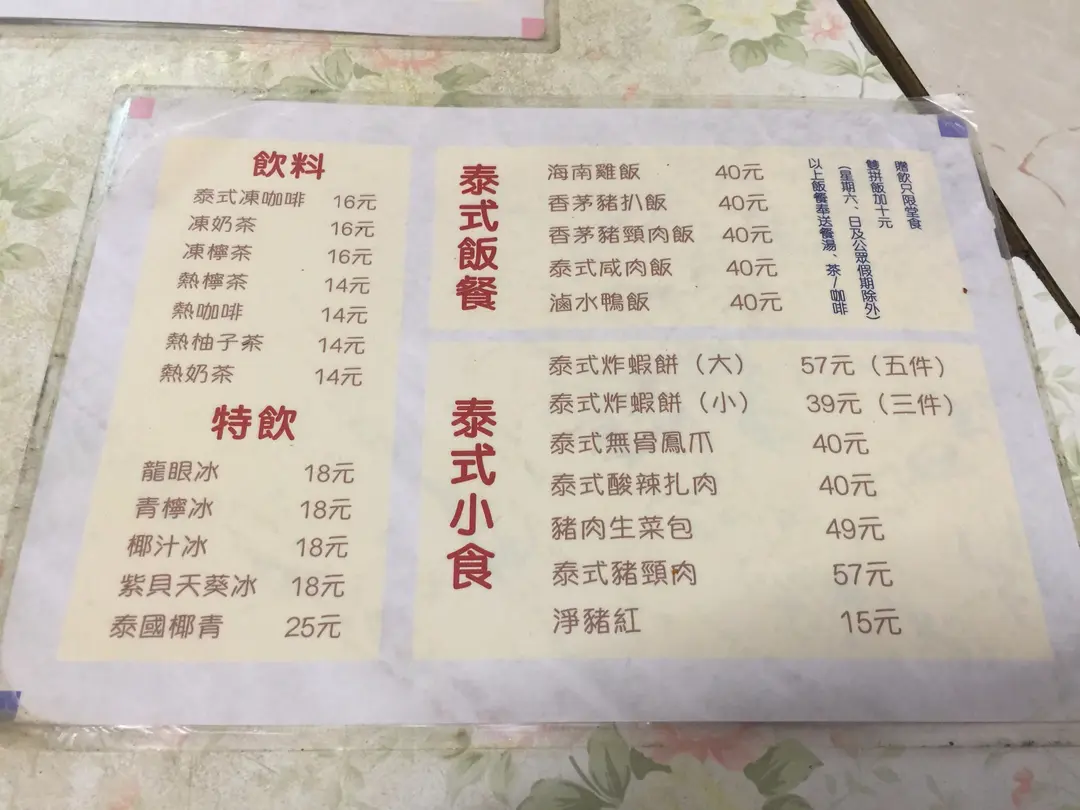 飲料
泰式凍咖啡 16元
凍奶茶 16元
凍檸茶 16元
熱檸茶 14元
熱咖啡 14元
熱柚子茶 14元
熱奶茶 14元
特飲
龍眼冰 18元
青檸冰 18元
椰汁冰 18元
紫貝天葵冰 18元
泰國椰青 25元
泰式飯餐
海南雞飯 40元
香茅豬扒飯 40元
香茅豬頸肉飯 40元
泰式咸肉飯 40元
滷水鴨飯 40元
贈飲只限堂食
雙拼飯加十元
(星期六、日及公眾假期除外)
以上飯餐奉送餐湯、茶/咖啡
泰式小食
泰式炸蝦餅（大） 57元（五件）
泰式炸蝦餅（小） 39元（三件）
泰式無骨鳳爪 40元
泰式酸辣扎肉 40元
豬肉生菜包 49元
泰式豬頸肉 57元
淨豬紅 15元